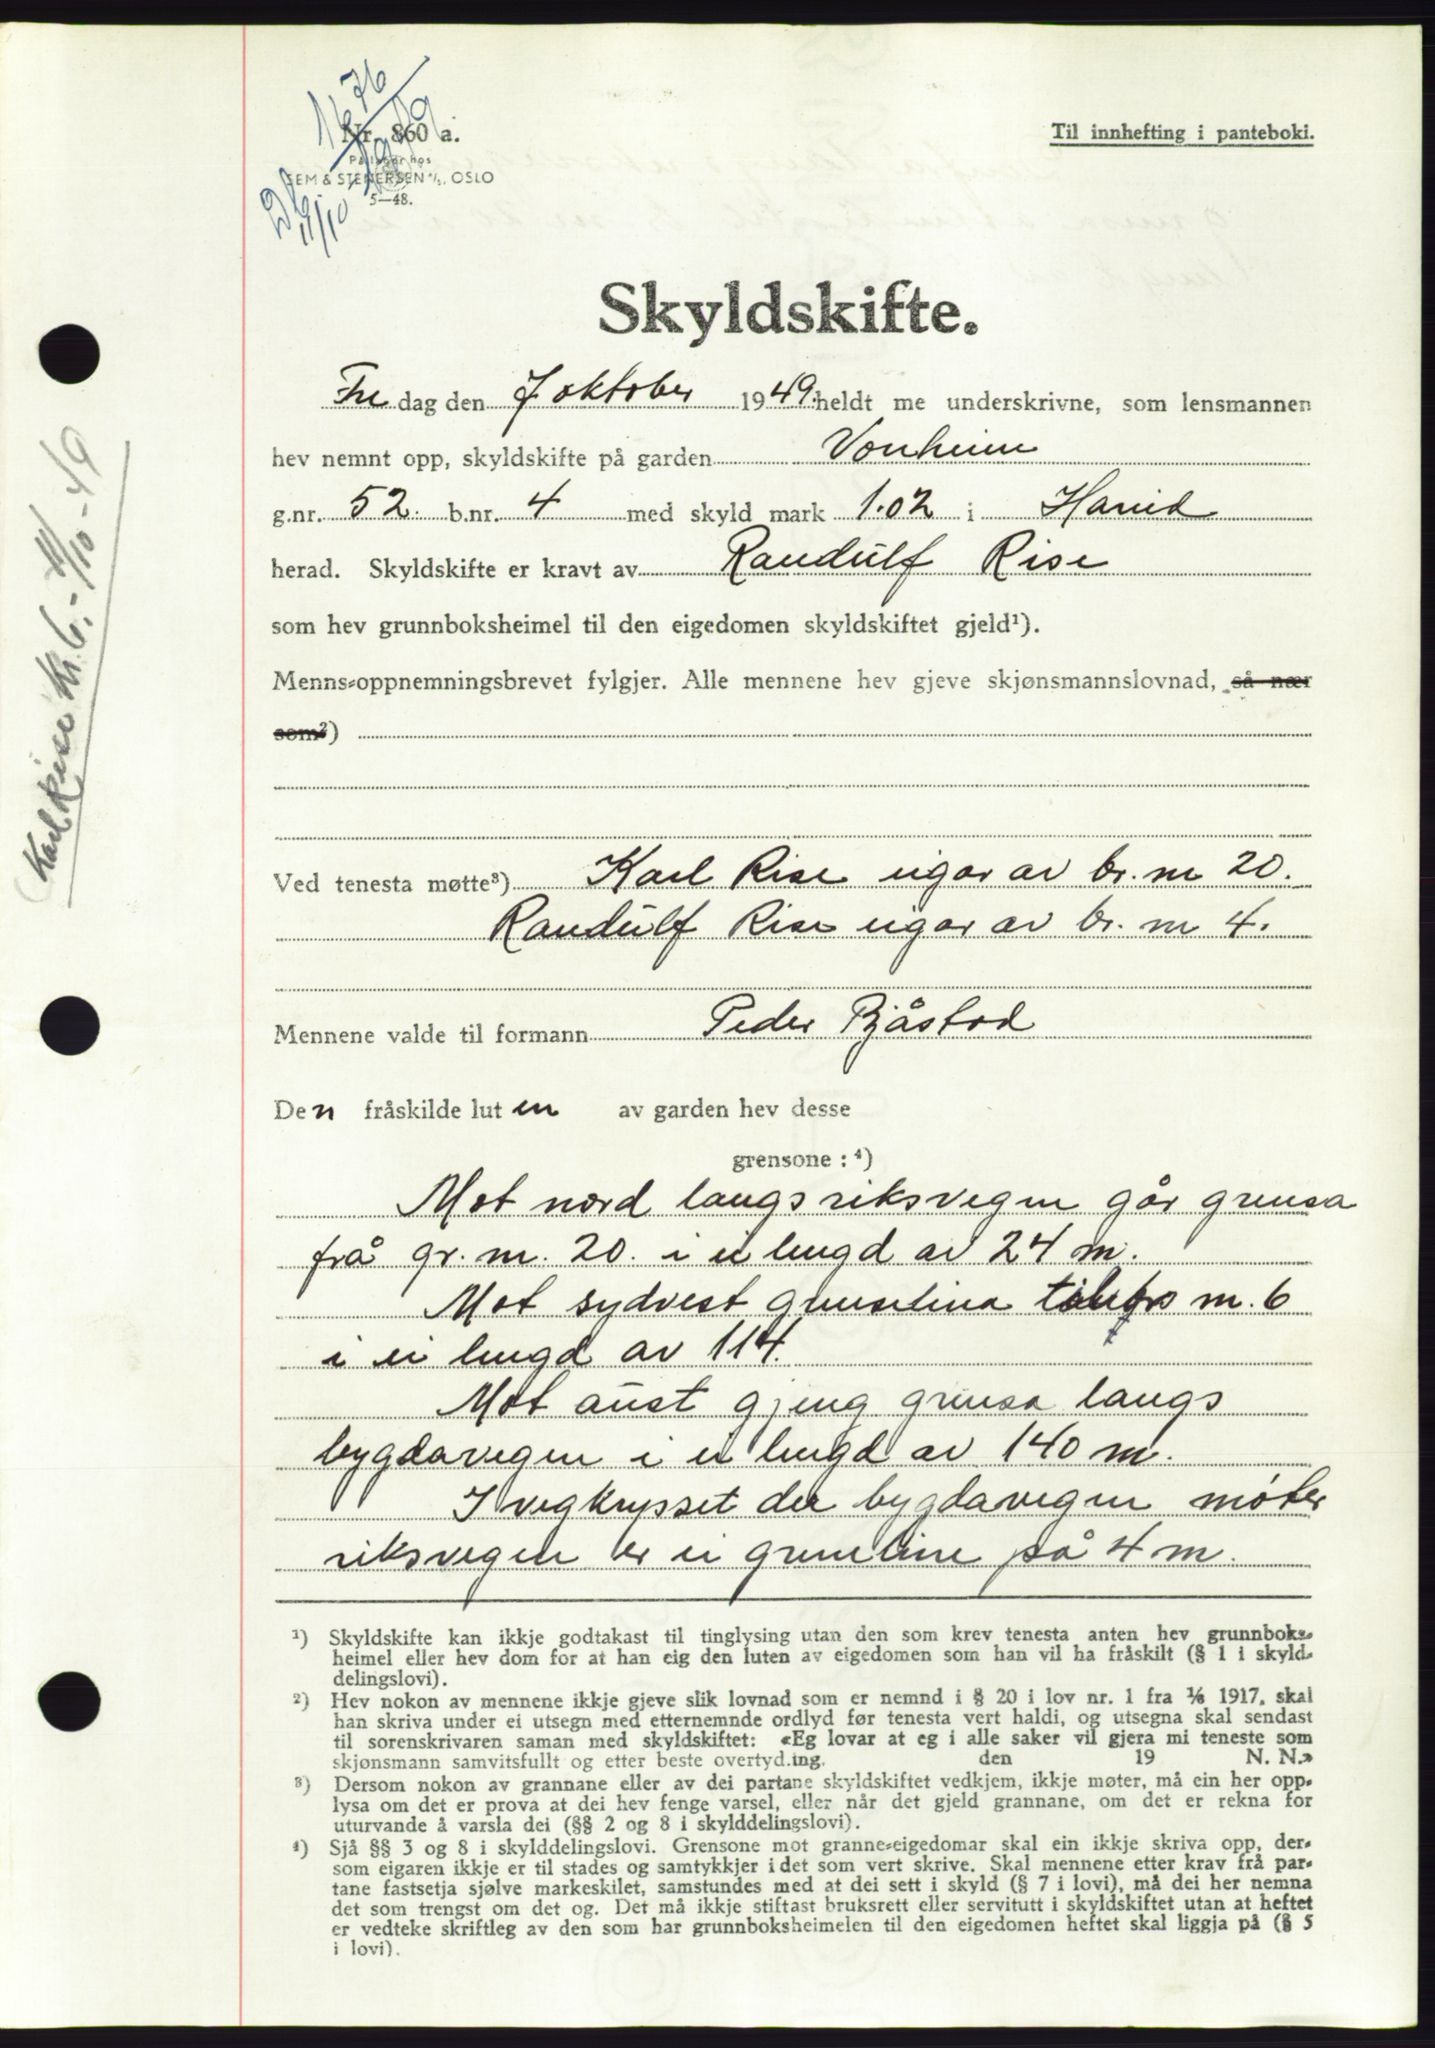 1676
1949
Dk. 11/10
Nr. 860 a.
På lager hos
SEM & STENERSEN A/S, OSLO
5—48.
Til innhefting i panteboki.
Skyldskifte.
Fre dag den 7 oktober 1949. heldt me underskrivne, som lensmannen
hev nemnt opp, skyldskifte på garden Vonheim
g.nr. 52. b.nr. 4 med skyld mark 1.02 i Hareid
herad. Skyldskifte er kravt av Randulf Rise
som hev grunnboksheimel til den eigedomen skyldskiftet gjeld¹).
Menns-oppnemningsbrevet fylgjer. Alle mennene hev gjeve skjønsmannslovnad, så nær
som²)
Ved tenesta møtte³) Karl Rise eigar av br. nr 20.
Randulf Rise eigar av br. nr 4.
Mennene valde til formann Peder Bjåstad
Den fråskilde luten av garden hev desse
grensone: ⁴)
Mot nord langs riksvegen går grensa
frå gr. nr. 20. i ei lengd av 24 m.
Mot sydvest grenselina til br nr. 6
i ei lengd av 114.
Mot aust gjeng grensa langs
bygdavegen i ei lengd av 140 m.
I vegkrysset der bygdavegen møter
riksvegen er ei grenseline på 4 m.
¹) Skyldskifte kan ikkje godtakast til tinglysing utan den som krev tenesta anten hev grunnboks-
heimel eller hev dom for at han eig den luten av eigedomen som han vil ha fråskilt (§ 1 i skyld-
delingslovi).
²) Hev nokon av mennene ikkje gjeve slik lovnad som er nemnd i § 20 i lov nr. 1 fra 1/6 1917, skal
han skriva under ei utsegn med etternemnde ordlyd før tenesta vert haldi, og utsegna skal sendast
til sorenskrivaren saman med skyldskiftet: «Eg lovar at eg i alle saker vil gjera mi teneste som
skjønsmann samvitsfullt og etter beste overtyding. den 19 N. N.»
³) Dersom nokon av grannane eller av dei partane skyldskiftet vedkjem, ikkje møter, må ein her opp-
lysa om det er prova at dei hev fenge varsel, eller når det gjeld grannane, om det er rekna for
uturvande å varsla dei (§§ 2 og 8 i skylddelingslovi).
⁴) Sjå §§ 3 og 8 i skylddelingslovi. Grensone mot granne-eigedomar skal ein ikkje skriva opp, der-
som eigaren ikkje er til stades og samtykkjer i det som vert skrive. Skal mennene etter krav frå par-
tane fastsetja sjølve markeskilet, samstundes med at dei sett i skyld (§ 7 i lovi), må dei her nemna
det som trengst om det og. Det må ikkje stiftast bruksrett eller servitutt i skyldskiftet utan at heftet
er vedteke skriftleg av den som har grunnboksheimelen til den eigedomen heftet skal liggja på (§ 5
i lovi).
Karl Rise kr. 6,- 11/10-49